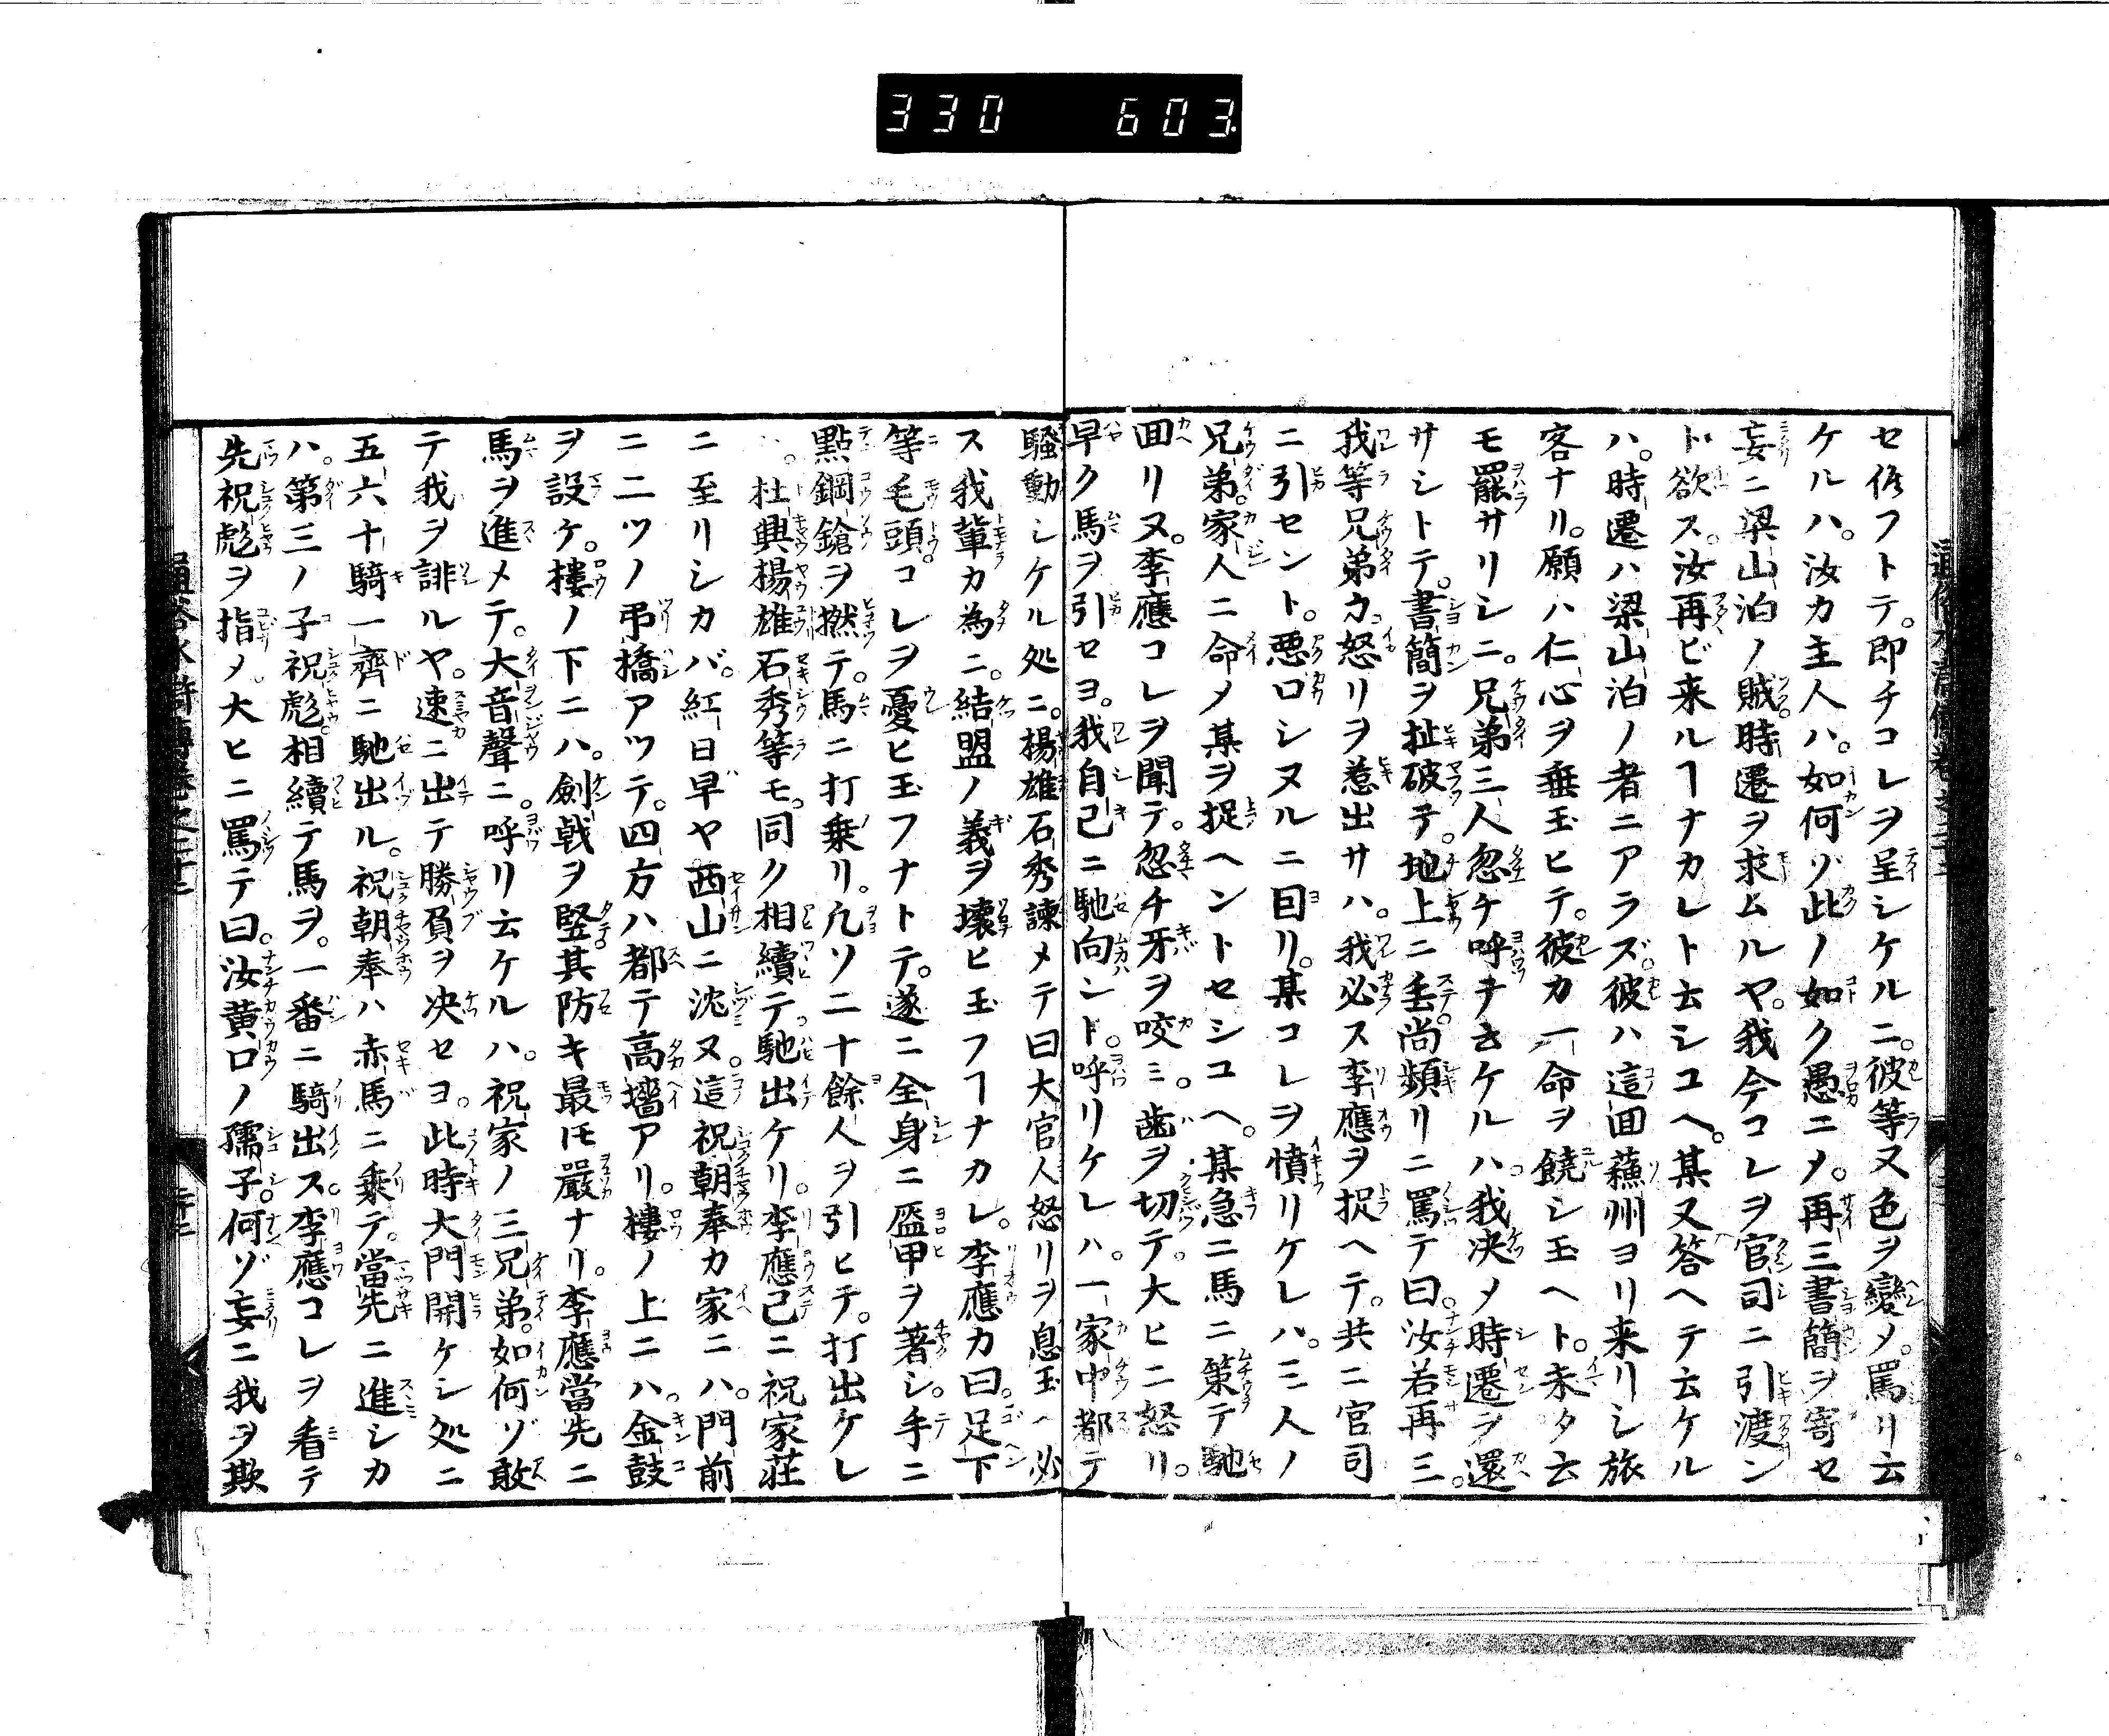 330 603
セ候フトテ。即チコレヲ呈シケルニ。彼等又色ヲ變メ。罵リ云
ケルハ。汝カ主人ハ。如何ゾ此ノ如ク愚ニメ。再三書簡ヲ寄セ
妄ニ梁山泊ノ賊時遷ヲ求ムルヤ。我今コレヲ官司ニ引渡ン
ト欲ス。汝再ビ来ルヿナカレト云シユヘ。某又答ヘテ云ケル
ハ。時遷ハ梁山泊ノ者ニアラズ。彼ハ這回蘓州ヨリ来リシ旅
客ナリ。願ハ仁心ヲ垂玉ヒテ。彼カ一命ヲ饒シ玉ヘト。未タ云
モ罷サリシニ。兄弟三人忽チ呼ヲ云ケルハ。我决メ時遷ヲ還
サシトテ。書簡ヲ扯破テ。地上ニ丢尚頻リニ罵テ曰。汝若再三。
我等兄弟カ怒リヲ惹出サハ。我必ス李應ヲ捉ヘテ。共ニ官司
ニ引セント。悪口シヌルニ囙リ。某コレヲ憤リケレハ。三人ノ
兄弟家人ニ命メ某ヲ捉ヘントセシユヘ。某急ニ馬ニ策テ馳
囬リヌ。李應コレヲ聞テ。忽チ牙ヲ咬ミ。歯ヲ切テ。大ヒニ怒リ。
早ク馬ヲ引セヨ。我自己ニ馳向ント。呼リケレハ。一家中都テ
騒動シケル処ニ。楊雄石秀諫メテ曰大官人怒リヲ息玉ヘ必
ス我輩カ為ニ。結盟ノ義ヲ壊ヒ玉フヿナカレ。李應カ曰。足下
等毛頭コレヲ憂ヒ玉フナトテ。遂ニ全身ニ盔甲ヲ著シ。手ニ
點鋼鎗ヲ撚テ。馬ニ打乗リ。凢ソ二十餘人ヲ引ヒテ。打出ケレ
ハ。杜興楊雄石秀等モ。同ク相續テ。馳出ケリ。李應已ニ祝家莊
ニ至リシカバ。紅日早ヤ西山ニ沈ヌ。這祝朝奉カ家ニハ。門前
ニ二ツノ弔橋アツテ。四方ハ都テ高墻アリ。樓ノ上ニハ。金鼓
ヲ設ケ。樓ノ下ニハ。劍戟ヲ竪其防キ最モ嚴ナリ。李應當先ニ
馬ヲ進メテ。大音聲ニ。呼リ云ケルハ。祝家ノ三兄弟。如何ゾ敢
テ我ヲ誹ルヤ。速ニ出テ勝負ヲ决セヨ。此時大門開ケシ処ニ
五六十騎一齊ニ馳出ル。祝朝奉ハ赤馬ニ乗テ。當先ニ進シカ
ハ。第三ノ子祝彪。相續テ馬ヲ。一番ニ騎出ス。李應コレヲ看テ
先祝彪ヲ指メ。大ヒニ罵テ曰。汝黄口ノ孺子。何ゾ妄ニ我ヲ欺